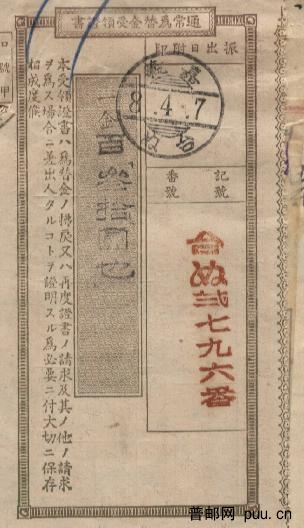 通常爲替金受領證書
振出日附印
8.4.7
記號
番號
ぬ貳七九六番
一金
拾圓也
本受領證書ハ爲替金ノ拂戾又ハ再度證書ノ請求及其ノ他ノ請求
ヲ爲ス場合ニ差出人タルコトヲ證明スル爲必要ニ付大切ニ保存
相成度候
號甲
普邮网 puu.cn